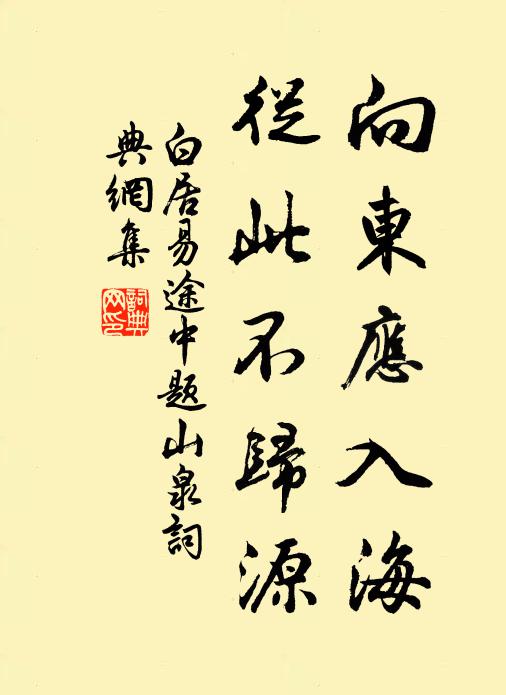 向東應入海
從此不歸源
白居易途中題山泉詞
典網集
詞典
网印